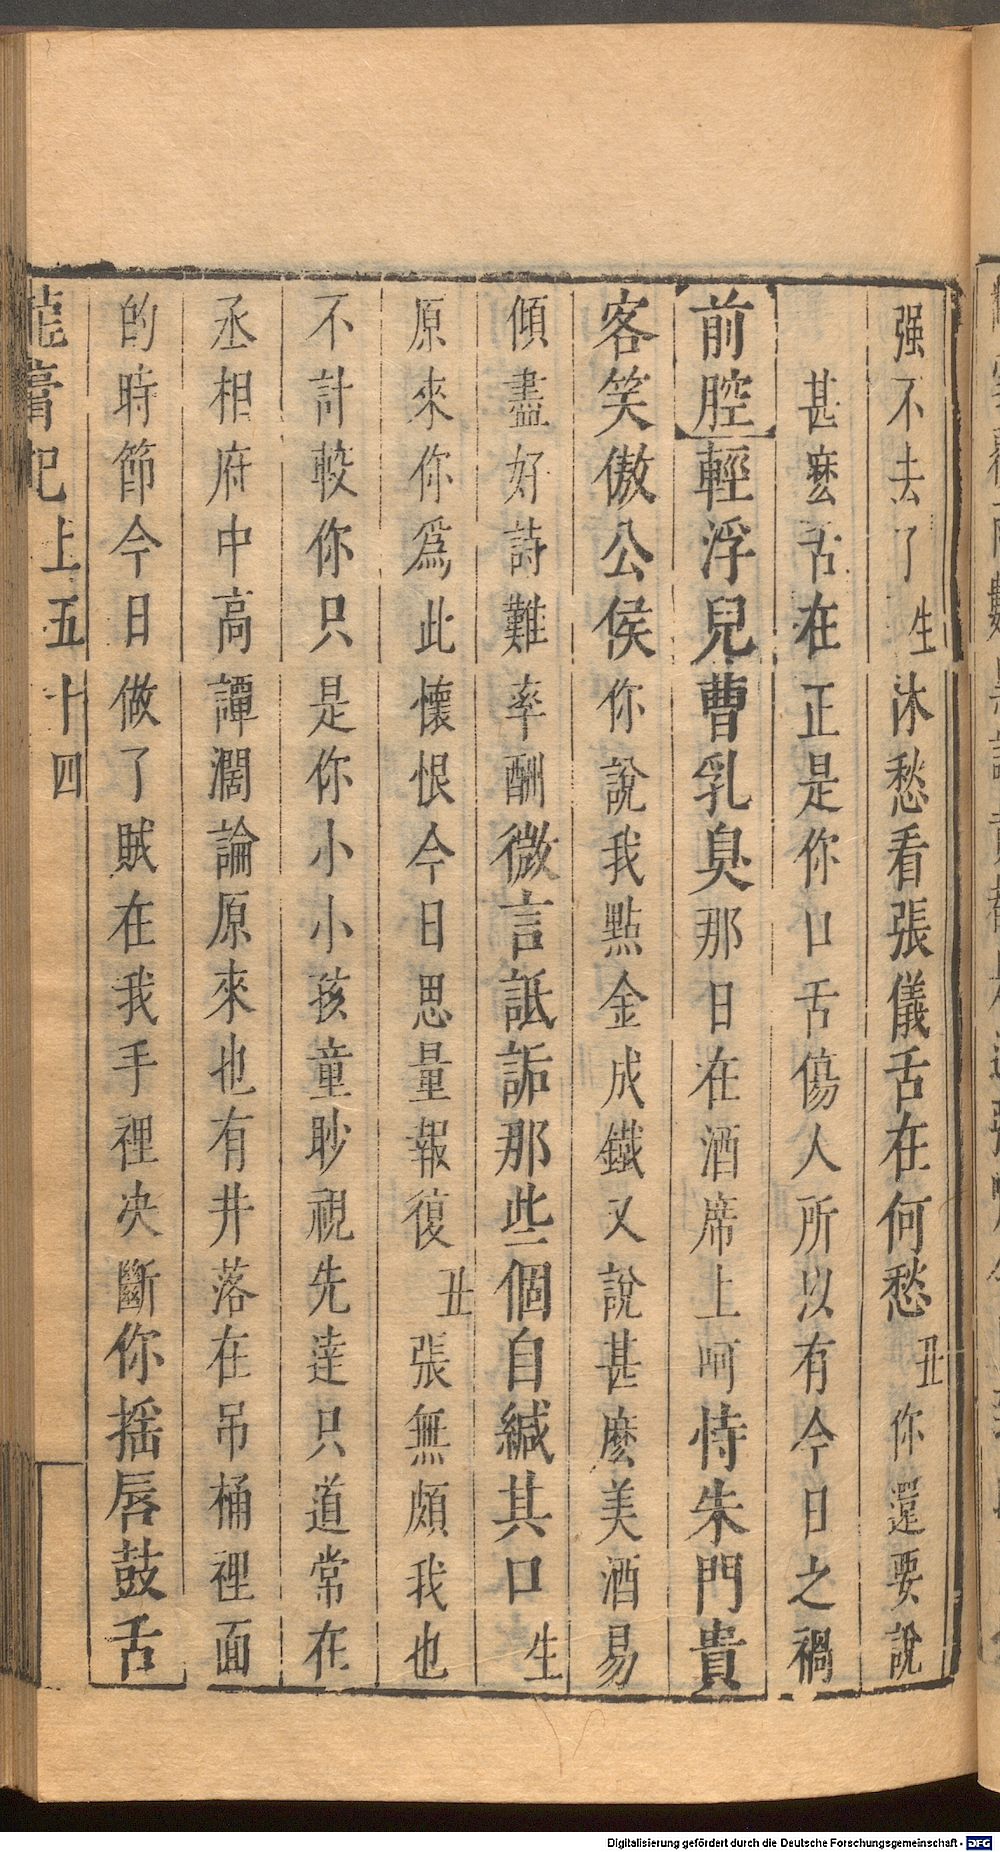 强不去了生沐愁看張儀舌在何愁丑你還要說
甚麽舌在正是你口舌傷人所以有今日之禍
前腔輕浮兒曹乳臭那日在酒席上呵恃朱門貴
客笑傲公侯你說我點金成鐵又說甚麽美酒易
傾盡好詩難率酬微言詆詬那些個自緘其口生
原來你爲此懷恨今日思量報復丑張無頗我也
不計較你只是你小小孩童眇視先達只道常在
丞相府中高譚濶論原來也有井落在吊桶裡面
的時節今日做了賊在我手裡决斷你揺唇鼓舌
龍膏記上五十四
Digitalisierung gefördert durch die Deutsche Forschungsgemeinschaft - DFG